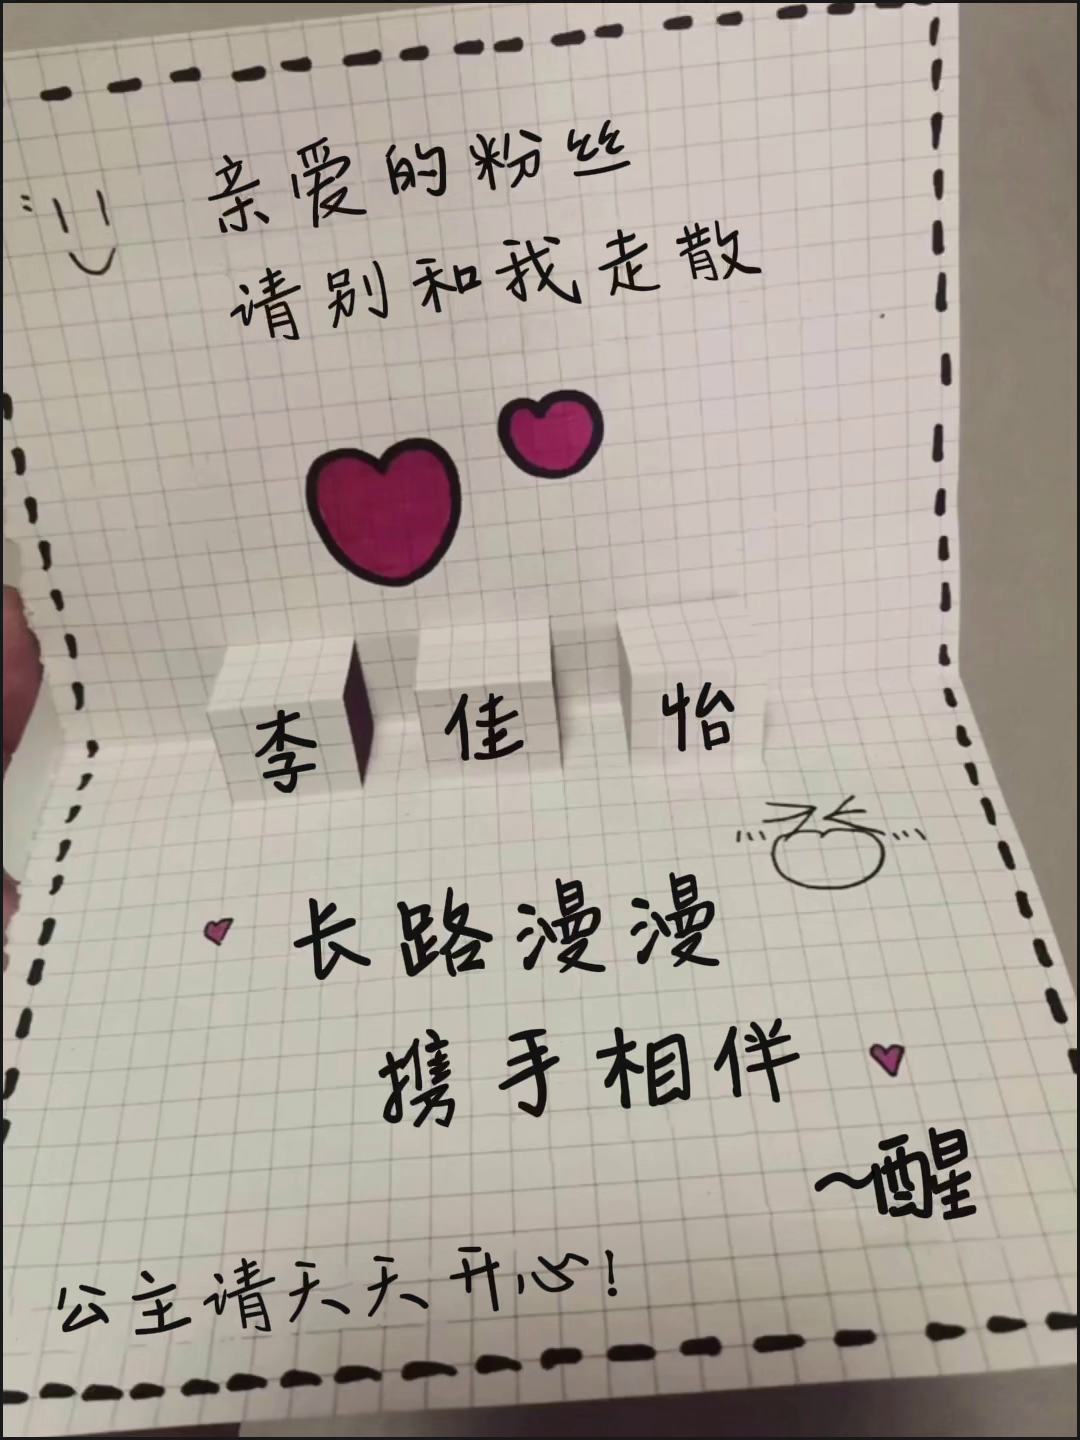 亲爱的粉丝
请别和我走散
李佳怡
长路漫漫
携手相伴
~醒
公主请天天开心!